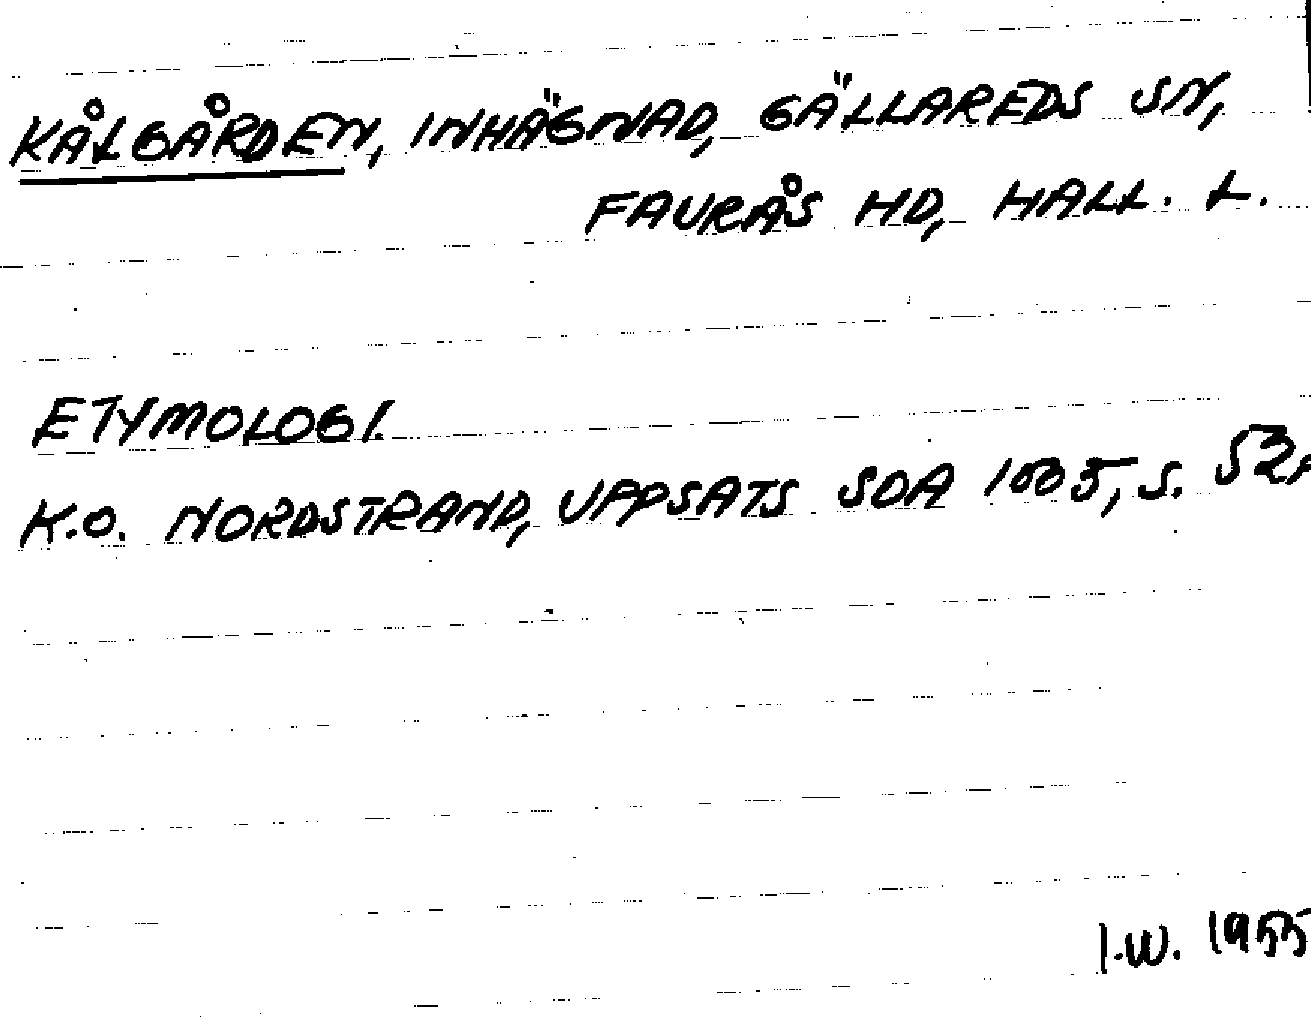 KÅLGÅRDEN, INHÄGNAD, GÄLLAREDS SN,
FAURÅS HD, HALL. L.
ETYMOLOGI.
K.O. NORDSTRAND, UPPSATS SOA s.
I.W. 1955